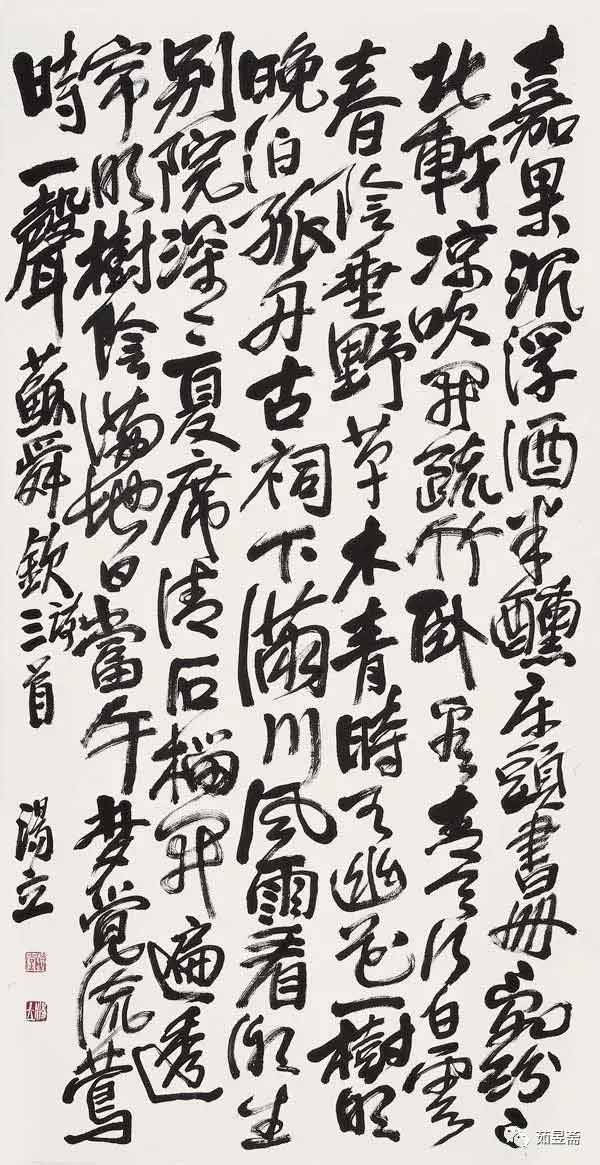 嘉果沉浮酒半醺床頭書冊亂紛〻
北軒凉吹開疏竹卧看青天行白雲
春陰垂野草木青時有幽花一樹明
晚泊孤舟古祠下滿川風雨看潮生
别院深〻夏席清石榴開遍透
帘明樹陰滿地日當午梦覺流鶯
時一聲 蘇舜欽詩三首 湯立
茹昱斋